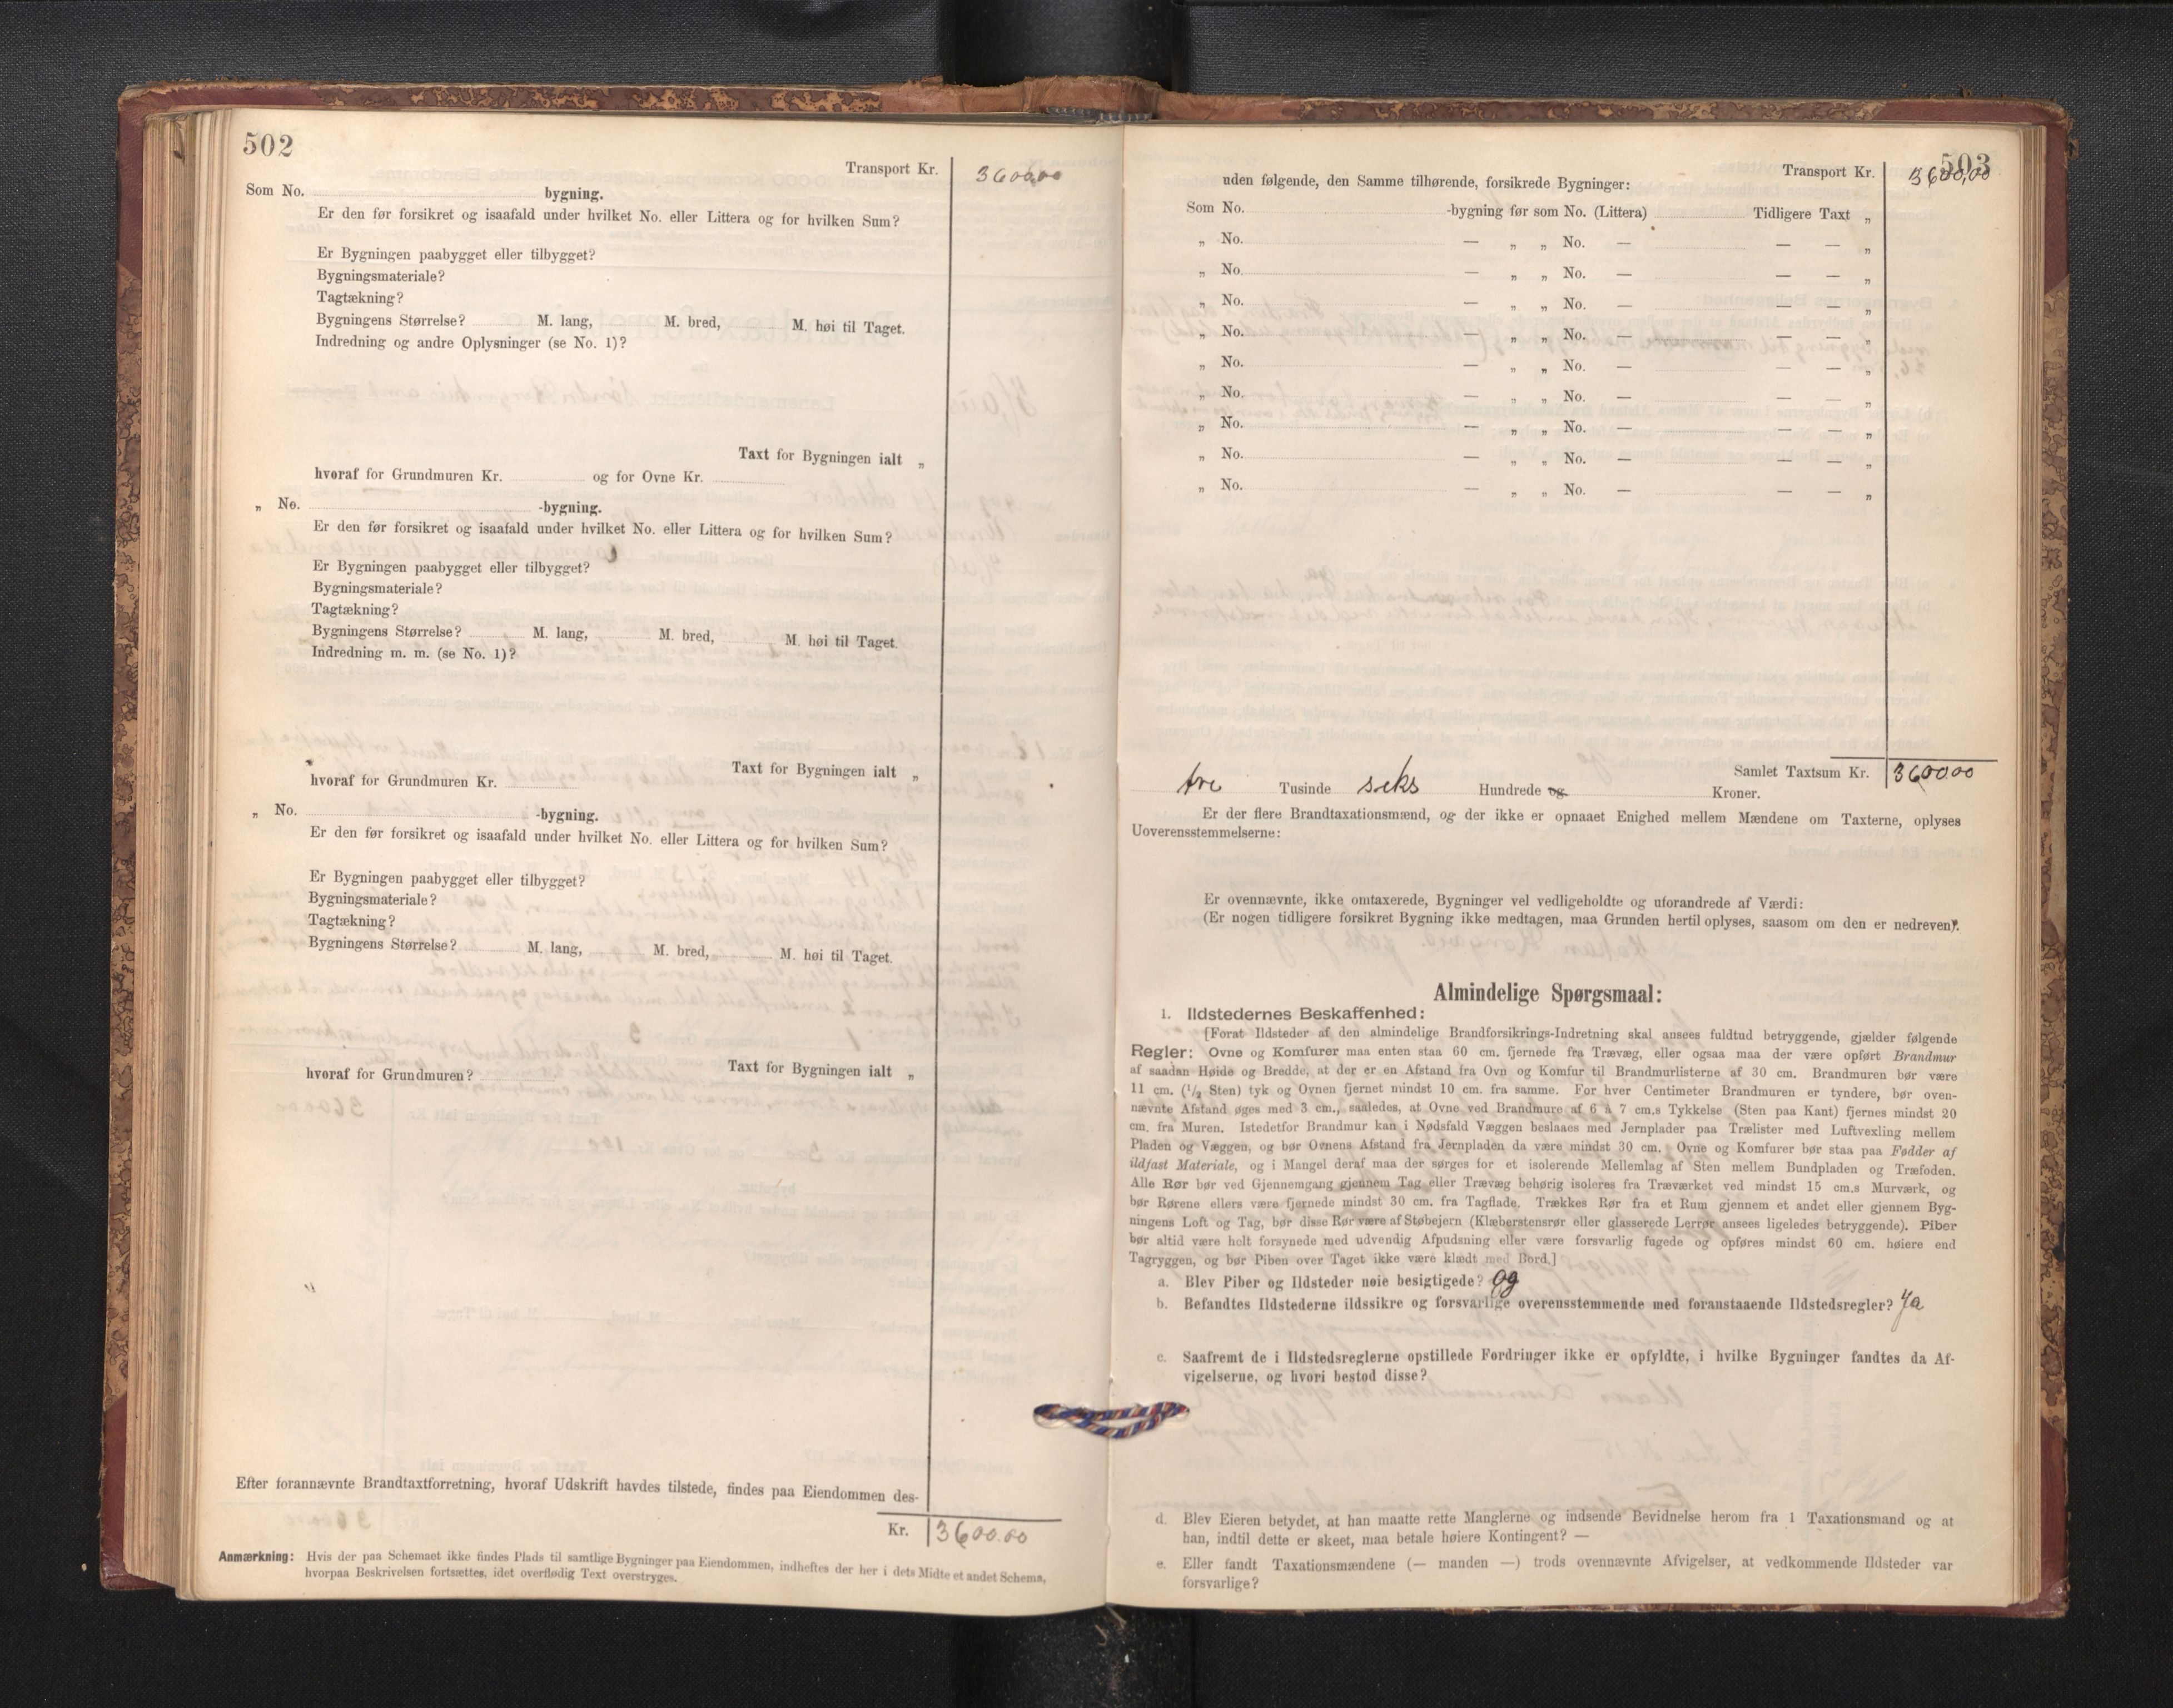 502
Transport Kr. 3600,00
Som No. bygning.
Er den før forsikret og isaafald under hvilket No. eller Littera og for hvilken Sum?
Er Bygningen paabygget eller tilbygget?
Bygningsmateriale?
Tagtækning?
Bygningens Størrelse? M. lang, M. bred, M. høi til Taget.
Indredning og andre Oplysninger (se No. 1)?
Taxt for Bygningen ialt „
hvoraf for Grundmuren Kr. og for Ovne Kr.
„ No. -bygning.
Er den før forsikret og isaafald under hvilket No. eller Littera og for hvilken Sum?
Er Bygningen paabygget eller tilbygget?
Bygningsmateriale?
Tagtækning?
Bygningens Størrelse? M. lang, M. bred, M. høi til Taget.
Indredning m. m. (se No. 1)?
Taxt for Bygningen ialt „
hvoraf for Grundmuren Kr.
„ No. -bygning.
Er den før forsikret og isaafald under hvilket No. eller Littera og for hvilken Sum?
Er Bygningen paabygget eller tilbygget?
Bygningsmateriale?
Tagtækning?
Bygningens Størrelse? M. lang, M. bred, M. høi til Taget.
Taxt for Bygningen ialt „
hvoraf for Grundmuren?
Efter forannævnte Brandtaxtforretning, hvoraf Udskrift havdes tilstede, findes paa Eiendommen des-
Kr. 3600.00
Anmærkning: Hvis der paa Schemaet ikke findes Plads til samtlige Bygninger paa Eiendommen, indheftes der her i dets Midte et andet Schema,
hvorpaa Beskrivelsen fortsættes, idet overflødig Text overstryges.
503
Transport Kr. 3600,00
uden følgende, den Samme tilhørende, forsikrede Bygninger:
Som No. -bygning før som No. (Littera) Tidligere Taxt „
„ No. — „ „ No. — — — „
„ No. — „ „ No. — — — „
„ No. — „ „ No. — — — „
„ No. — „ „ No. — — — „
„ No. — „ „ No. — — — „
„ No. — „ „ No. — — — „
„ No. — „ „ No. — — — „
„ No. — „ „ No. — — — „
„ No. — „ „ No. — — — „
Samlet Taxtsum Kr. 3600.00
tre Tusinde seks Hundrede og Kroner.
Er der flere Brandtaxationsmænd, og der ikke er opnaaet Enighed mellem Mændene om Taxterne, oplyses
Uoverensstemmelserne:
Er ovennævnte, ikke omtaxerede, Bygninger vel vedligeholdte og uforandrede af Værdi:
(Er nogen tidligere forsikret Bygning ikke medtagen, maa Grunden hertil oplyses, saasom om den er nedreven).
Almindelige Spørgsmaal:
1. Ildstedernes Beskaffenhed:
[Forat Ildsteder af den almindelige Brandforsikrings-Indretning skal ansees fuldtud betryggende, gjælder følgende
Regler: Ovne og Komfurer maa enten staa 60 cm. fjernede fra Trævæg, eller ogsaa maa der være opført Brandmur
af saadan Høide og Bredde, at der er en Afstand fra Ovn og Komfur til Brandmurlisterne af 30 cm. Brandmuren bør være
11 cm. (1/2 Sten) tyk og Ovnen fjernet mindst 10 cm. fra samme. For hver Centimeter Brandmuren er tyndere, bør oven-
nævnte Afstand øges med 3 cm., saaledes, at Ovne ved Brandmure af 6 à 7 cm.s Tykkelse (Sten paa Kant) fjernes mindst 20
cm. fra Muren. Istedetfor Brandmur kan i Nødsfald Væggen beslaaes med Jernplader paa Trælister med Luftvexling mellem
Pladen og Væggen, og bør Ovnens Afstand fra Jernpladen da være mindst 30 cm. Ovne og Komfurer bør staa paa Fødder af
ildfast Materiale, og i Mangel deraf maa der sørges for et isolerende Mellemlag af Sten mellem Bundpladen og Træfoden.
Alle Rør bør ved Gjennemgang gjennem Tag eller Trævæg behørig isoleres fra Træværket ved mindst 15 cm.s Murværk, og
bør Rørene ellers være fjernede mindst 30 cm. fra Tagflade. Trækkes Rør fra et Rum gjennem et andet eller gjennem Byg-
ningens Loft og Tag, bør disse Rør være af Støbejern (Klæberstensrør eller glasserede Lerrør ansees ligeledes betryggende). Piber
bør altid være helt forsynede med udvendig Afpudsning eller være forsvarlig fugede og opføres mindst 60 cm. høiere end
Tagryggen, og bør Piben over Taget ikke være klædt med Bord.]
a. Blev Piber og Ildsteder nøie besigtigede? og
b. Befandtes Ildstederne ildssikre og forsvarlige overensstemmende med foranstaaende Ildstedsregler? Ja
c. Saafremt de i Ildstedsreglerne opstillede Fordringer ikke er opfyldte, i hvilke Bygninger fandtes da Af-
vigelserne, og hvori bestod disse?
d. Blev Eieren betydet, at han maatte rette Manglerne og indsende Bevidnelse herom fra 1 Taxationsmand og at
han, indtil dette er skeet, maa betale høiere Kontingent? —
e. Eller fandt Taxationsmændene (— manden —) trods ovennævnte Afvigelser, at vedkommende Ildsteder var
forsvarlige?